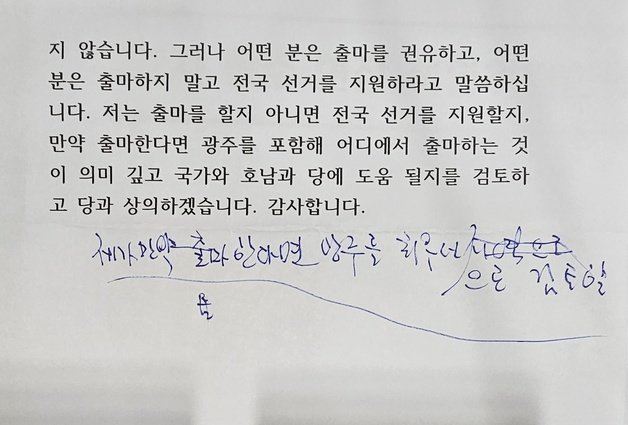 지 않습니다. 그러나 어떤 분은 출마를 권유하고, 어떤
분은 출마하지 말고 전국 선거를 지원하라고 말씀하십
니다. 저는 출마를 할지 아니면 전국 선거를 지원할지,
만약 출마한다면 광주를 포함해 어디에서 출마하는 것
이 의미 깊고 국가와 호남과 당에 도움 될지를 검토하
고 당과 상의하겠습니다. 감사합니다.
제가 만약 출마한다면 광주를 최우선
으로 검토할